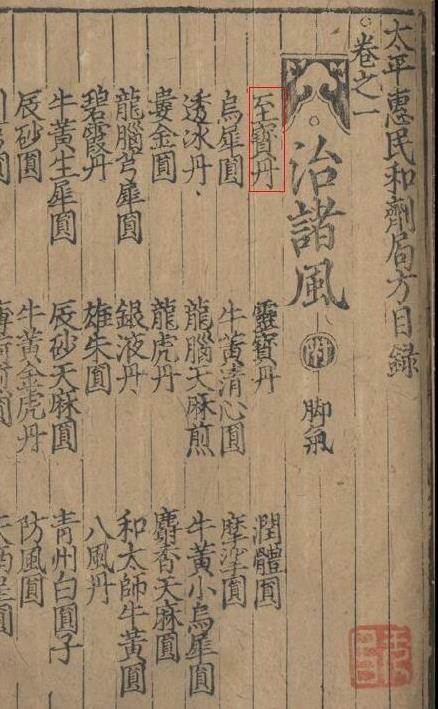 太平惠民和劑局方目錄
卷之一
治諸風 附 脚氣
至寶丹 靈寶丹 潤體圓
烏犀圓 牛黃清心圓 摩挲圓
透冰丹 龍腦天麻煎 牛黃小烏犀圓
婁金圓 龍虎丹 麝香天麻圓
龍腦芎犀圓 銀液丹 和太師牛黃圓
碧霞丹 雄朱圓 八風丹
牛黃生犀圓 辰砂天麻圓 青州白圓子
辰砂圓 牛黃金虎丹 防風圓